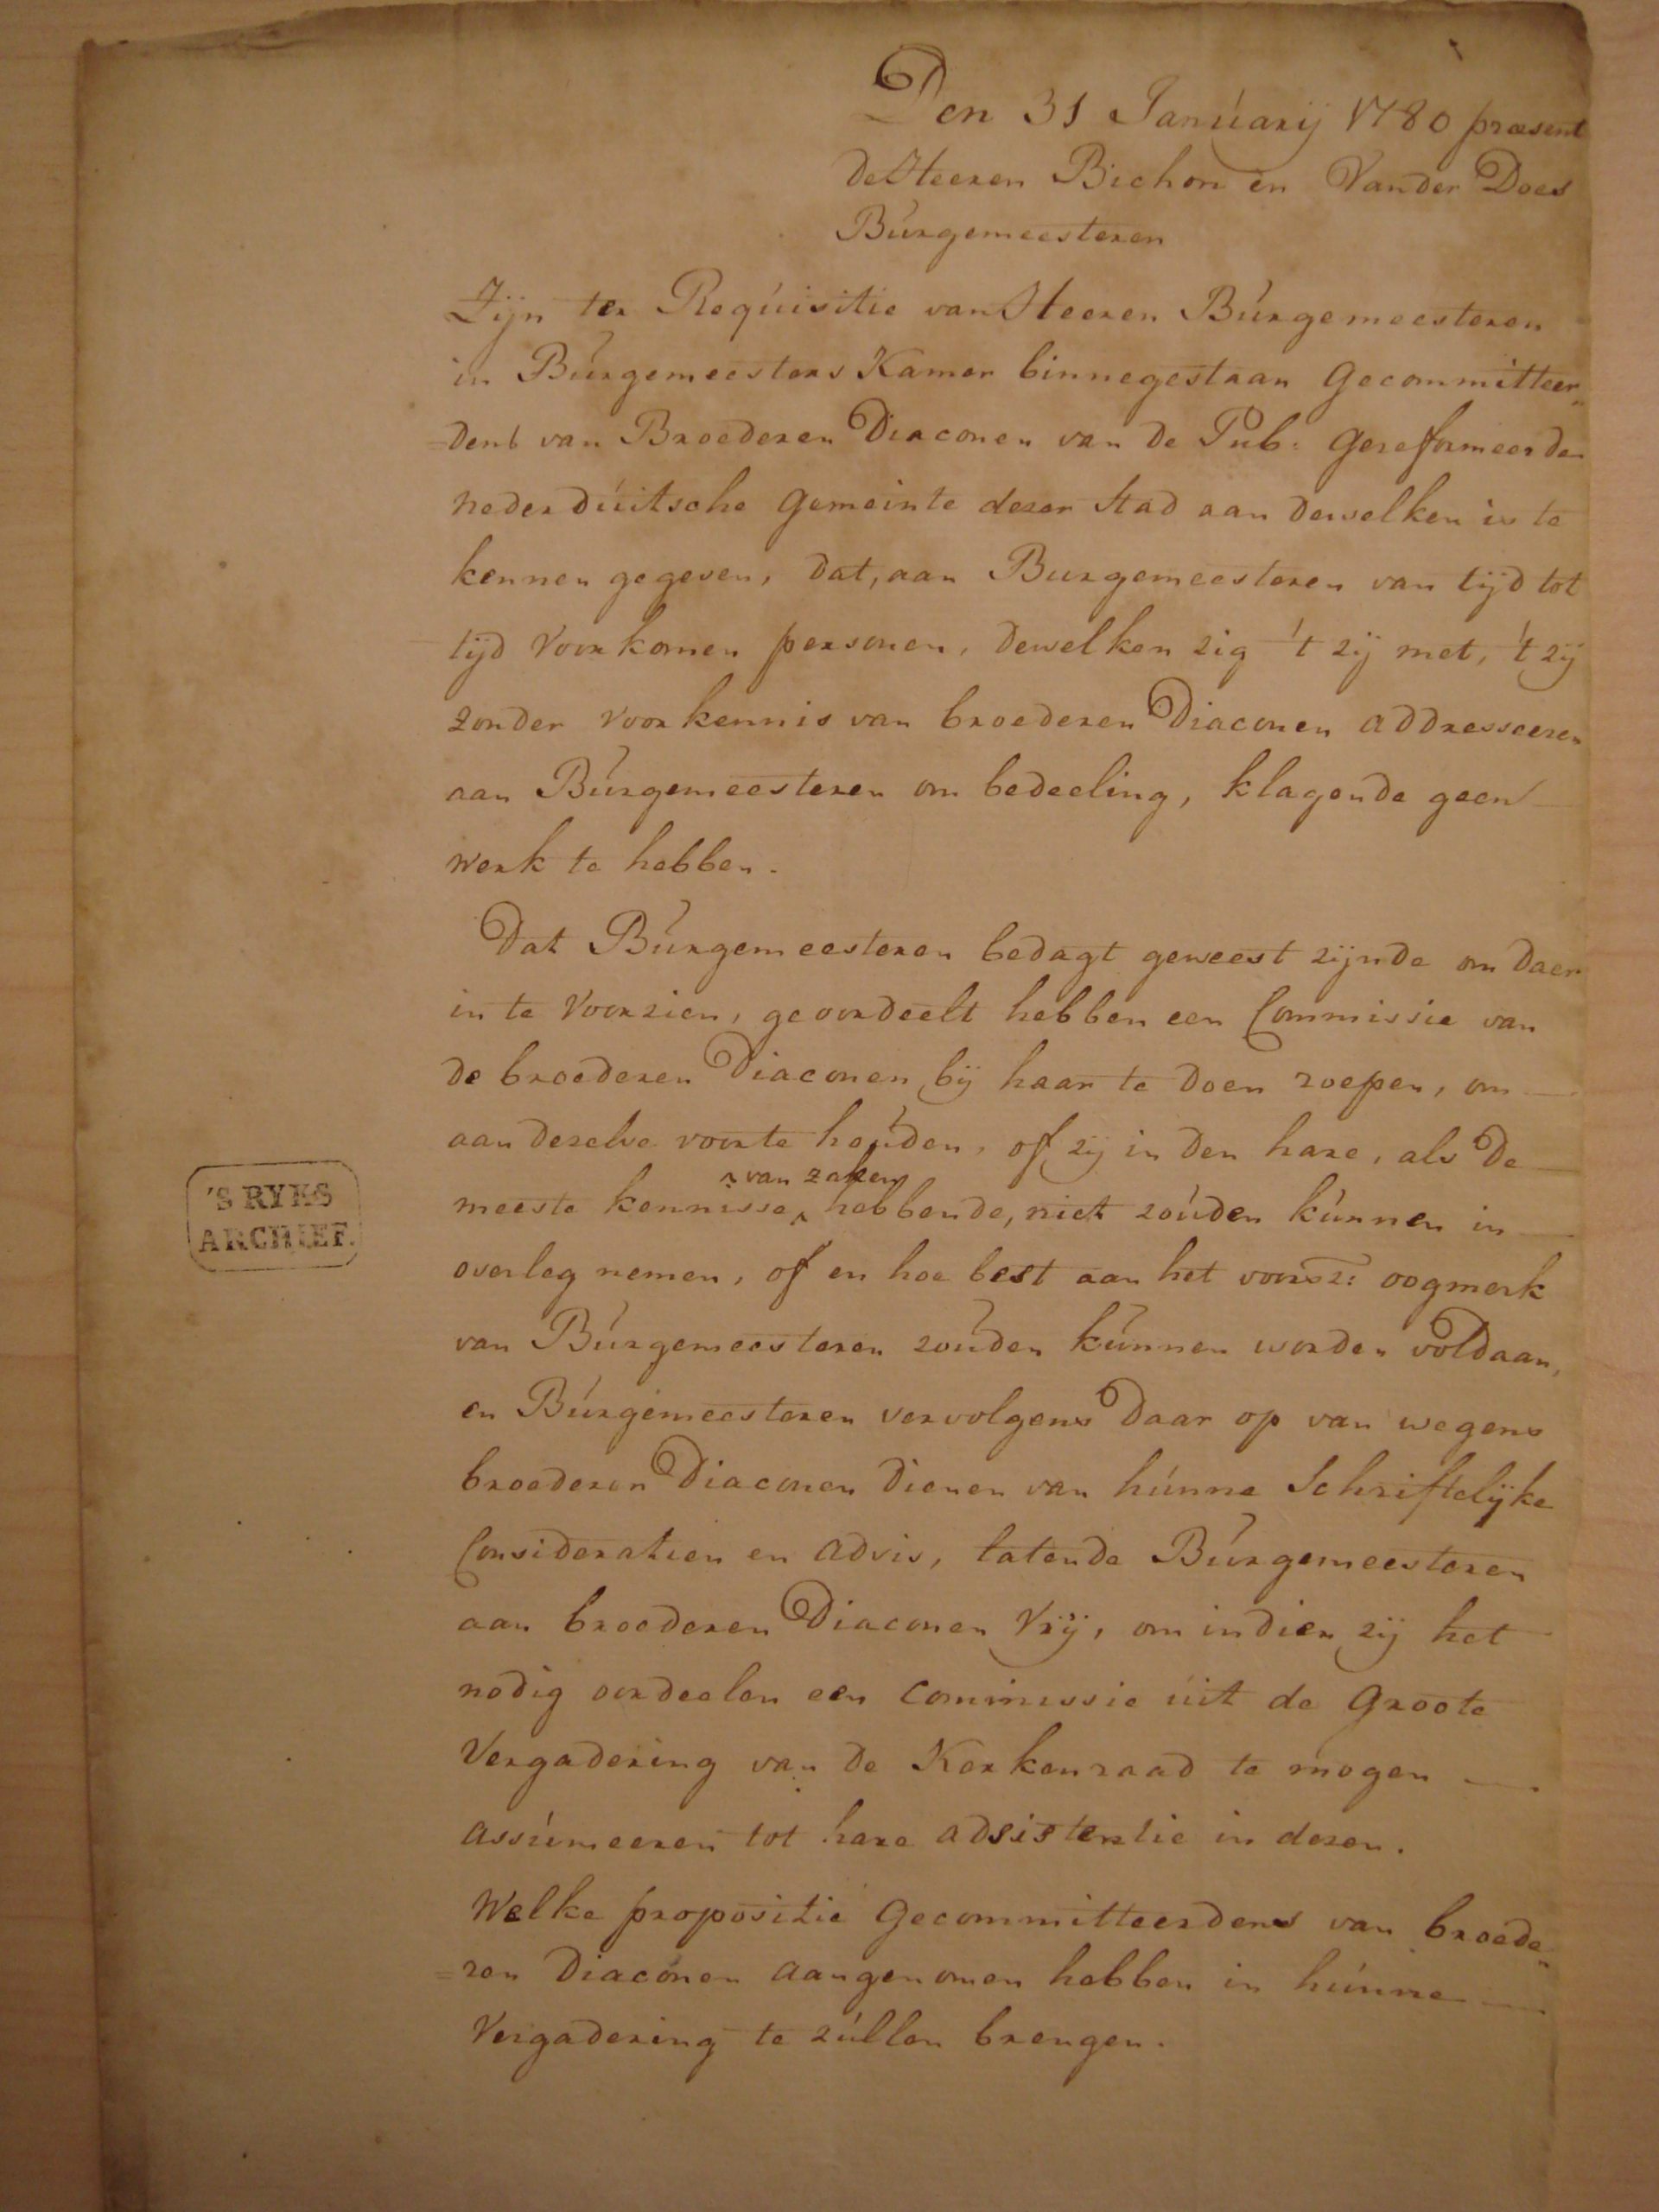 Den 31 Januarij 1780 præsent
de Heeren Bichon en Vander Does
Burgemeesteren
Zijn ter Requisitie van Heeren Burgemeesteren
in Burgemeesters Kamer binnegestaan Gecommitteer„
=dens van Broederen Diaconen van de Pub: Gereformeerde
nederduitsche Gemeinte dezer Stad aan dewelken is te
kennen gegeven, dat, aan Burgemeesteren van tijd tot
tijd Voorkomen personen, dewelken zig 't zij met, 't zij
zonder voorkennis van broederen Diaconen addresseeren
aan Burgemeesteren om bedeeling, klagende geen
werk te hebben.
Dat Burgemeesteren bedagt geweest zijnde om daer
in te Voorzien, geoordeelt hebben een Commissie van
de broederen Diaconen bij haar te doen roepen, om
aan dezelve voor te houden, of zij in den hare, als de
meeste kennisse van zaken hebbende, niet zouden kunnen in
overleg nemen, of en hoe best aan het voorsz: oogmerk
van Burgemeesteren zouden kunnen worden voldaan,
en Burgemeesteren vervolgens daar op van wegens
broederen Diaconen dienen van hunne Schriftelijke
Consideratien en advis, latende Burgemeesteren
aan broederen Diaconen Vrij, om indien zij het
nodig oordeelen een Commissie uit de Groote
Vergadering van de Kerkenraad te mogen
assumeeren tot hare adsistentie in dezen.
Welke propositie Gecommitteerdens van broede„
=ren Diaconen aangenomen hebben in hunne
Vergadering te zullen brengen.
'S RYKS
ARCHIEF.